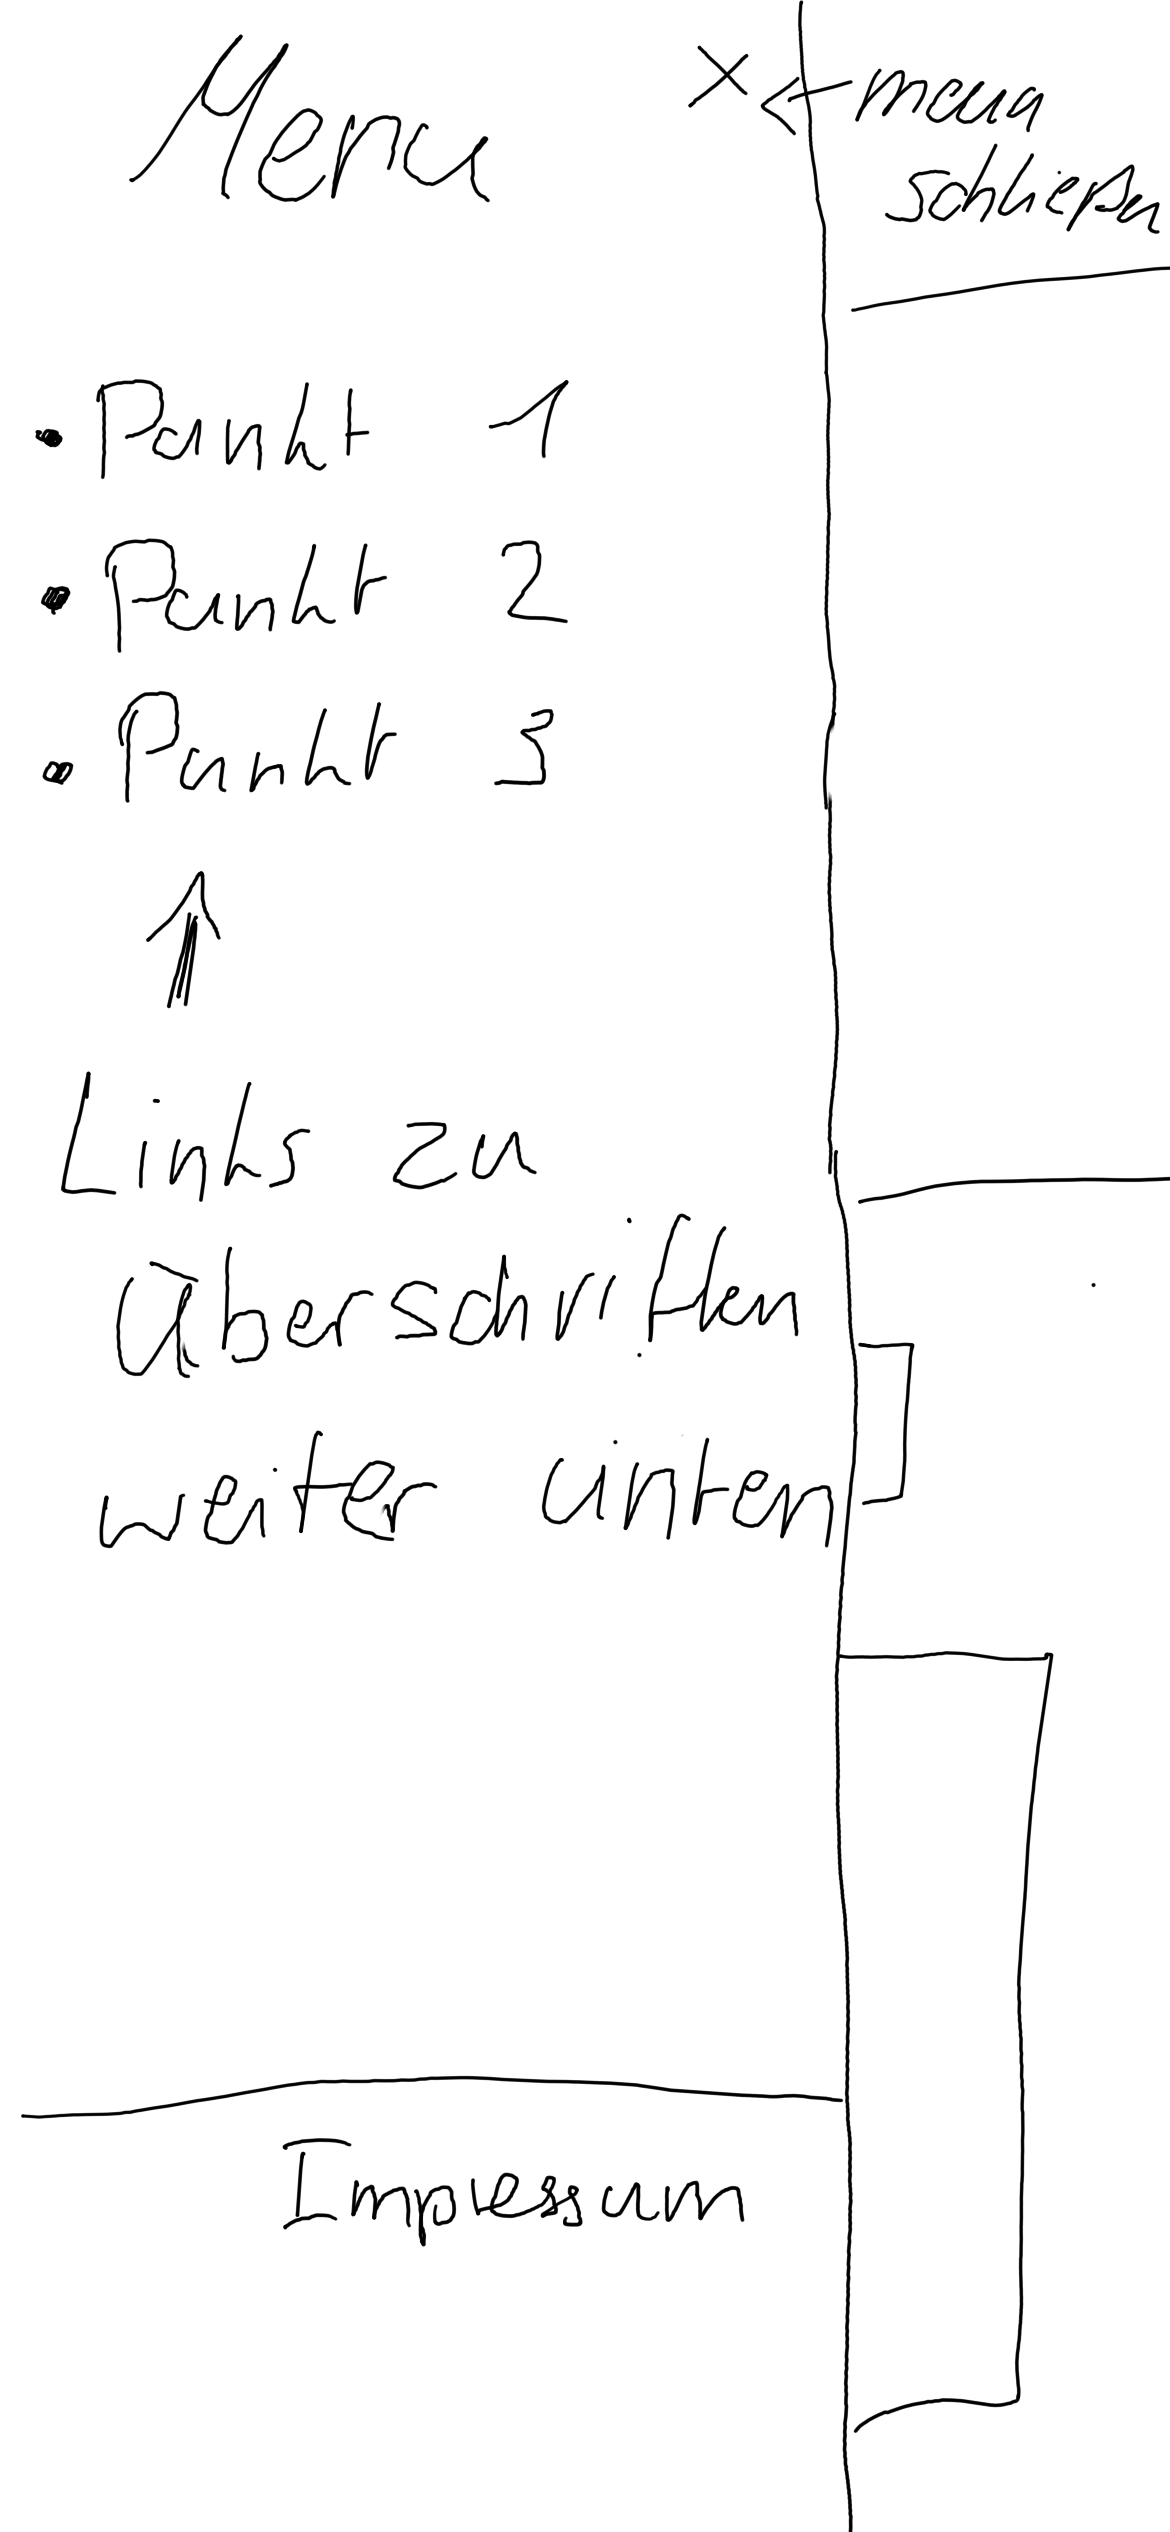 Menu
X
menu
schließen
• Punkt 1
• Punkt 2
• Punkt 3
Links zu
Überschriften
weiter unten
Impressum